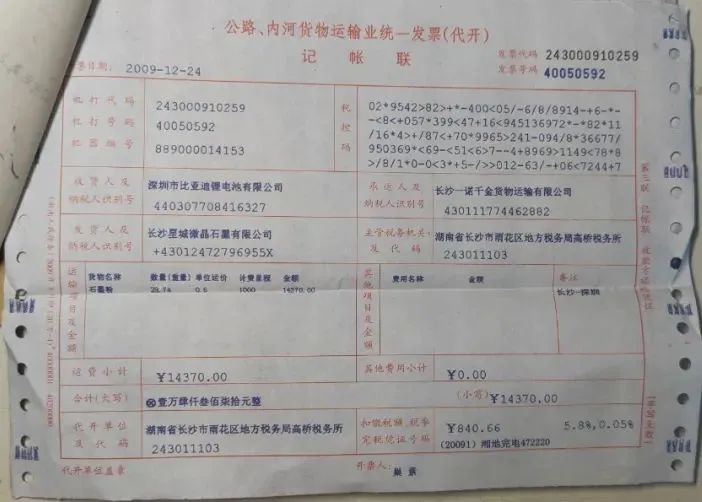 公路、内河货物运输业统一发票(代开)
记帐联
发票代码 243000910259
发票号码 40050592
票日期: 2009-12-24
机打代码 243000910259
机打号码 40050592
机器编号 889000014153
税控码
02*9542>82>+*-400<05/-6/8/8914-+6-*-
-<8<+057*399<47+16<945136972*-*82*11
/16*4>+/87<+70*9965>241-094/8*36677/
950369*<69-<51<6>7--4+8969>1149<78*8
>/8/1*0-0<3*+5-/>>012-63/-+06<7244+7
收货人及纳税人识别号
深圳市比亚迪锂电池有限公司
440307708416327
承运人及纳税人识别号
长沙一诺千金货物运输有限公司
430111774462882
发货人及纳税人识别号
长沙星城微晶石墨有限公司
+43012472796955X
主管税务机关及代码
湖南省长沙市雨花区地方税务局高桥税务所
243011103
运输项目及金额
货物名称 数量(重量) 单位运价 计费里程 金额
石墨粉 28.74 0.5 1000 14370.00
其他项目及金额
费用名称 金额
备注
长沙-深圳
运费小计 ¥14370.00
其他费用小计 ¥0.00
合计(大写) ⊗壹万肆仟叁佰柒拾元整
(小写) ¥14370.00
代开单位及代码
湖南省长沙市雨花区地方税务局高桥税务所
243011103
扣缴税额、税率 完税凭证号码
¥840.66 5.8%,0.05%
(20091) 湘地完电472220
代开单位盖章
开票人:
第三联 记帐联